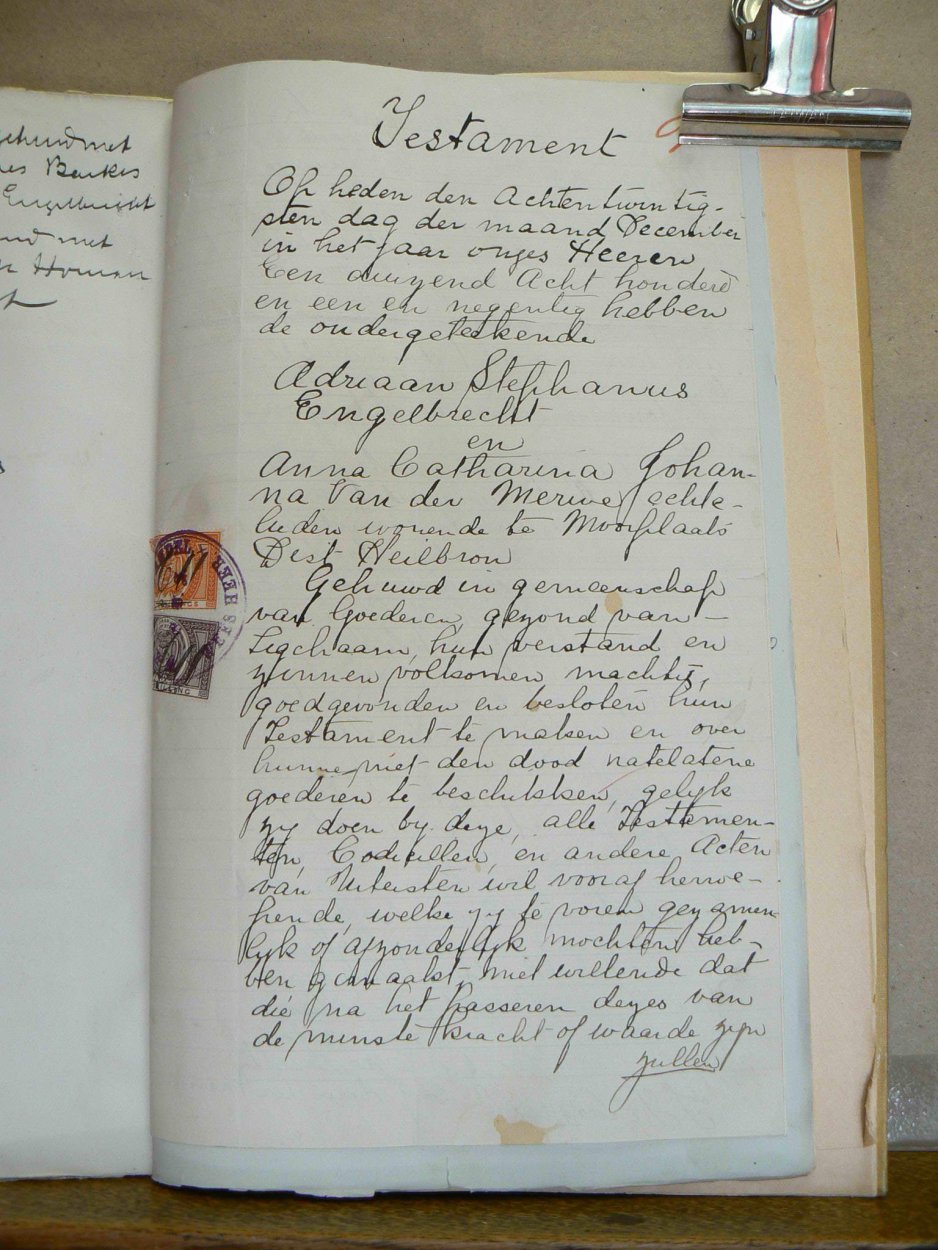 gehuwd met
Engelbrecht
met
Homan
Testament
Op heden den Achtentwintig-
sten dag der maand December
in het jaar onzes Heeren
Een duizend Acht honderd
en een en negentig hebben
de ondergeteekende
Adriaan Stephanus
Engelbrecht
en
Anna Catharina Johan-
na Van der Merwe echte-
lieden wonende te Mooiplaats
Dist Heilbron
Gehuwd in gemeenschap
van Goederen, gezond van
Ligchaam, hun verstand en
zinnen volkomen machtig,
goedgevonden en besloten hun
Testament te maken en over
hunne met den dood natelatene
goederen te beschikken, gelyk
zy doen by deze, alle Testamen-
ten, Codicillen, en andere Acten
van Uitersten wil vooraf herroe-
pende, welke zy te voren gezamen-
lyk of afzonderlyk mochten heb-
ben gemaakt, niet willende dat
die na het passeren dezes van
de minste kracht of waarde zyn
zullen